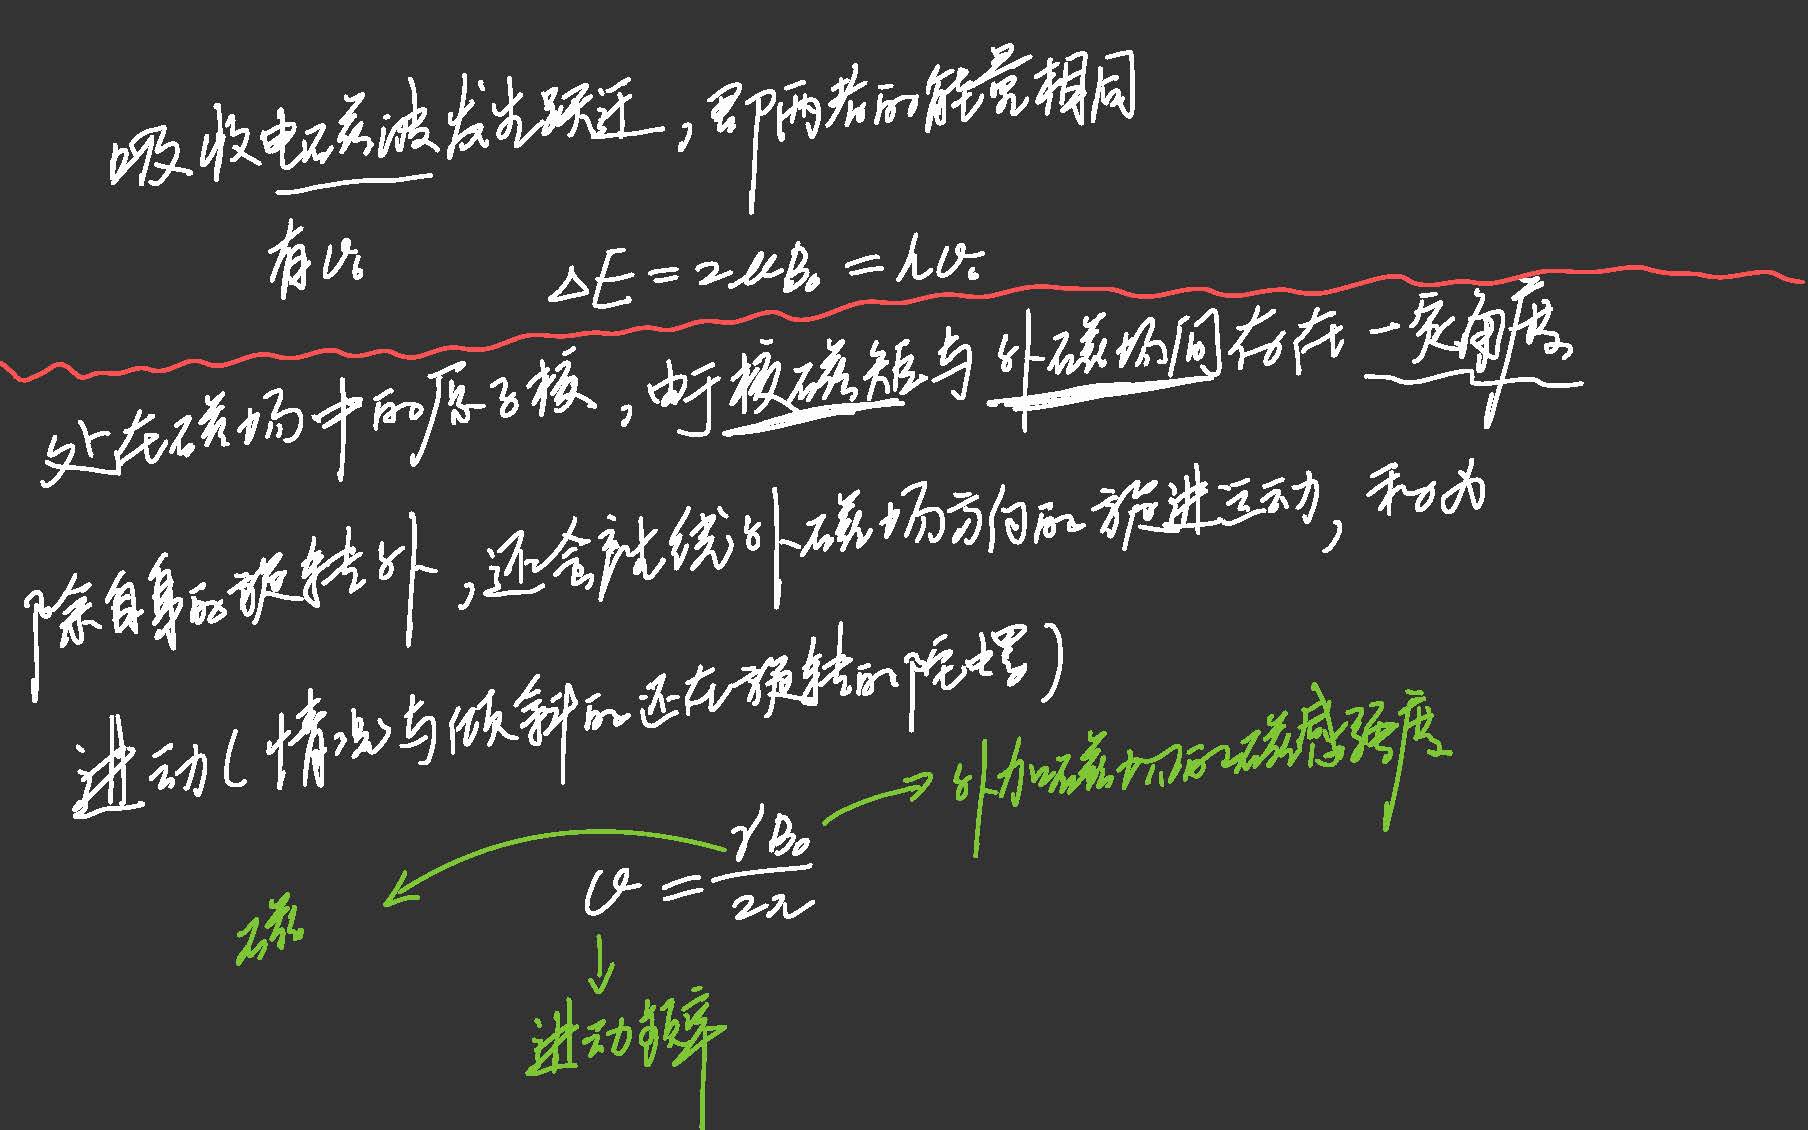 吸收电磁波发生跃迁,即两者的能量相同
有υ₀
ΔE=2μB₀=hυ₀
处在磁场中的原子核,由于核磁矩与外磁场间存在一定角度
除自身的旋转外,还会产生绕外磁场方向的旋进运动,称为
进动(情况与倾斜的还在旋转的陀螺)
外加磁场的磁感强度
υ=γB₀/2π
磁
进动频率